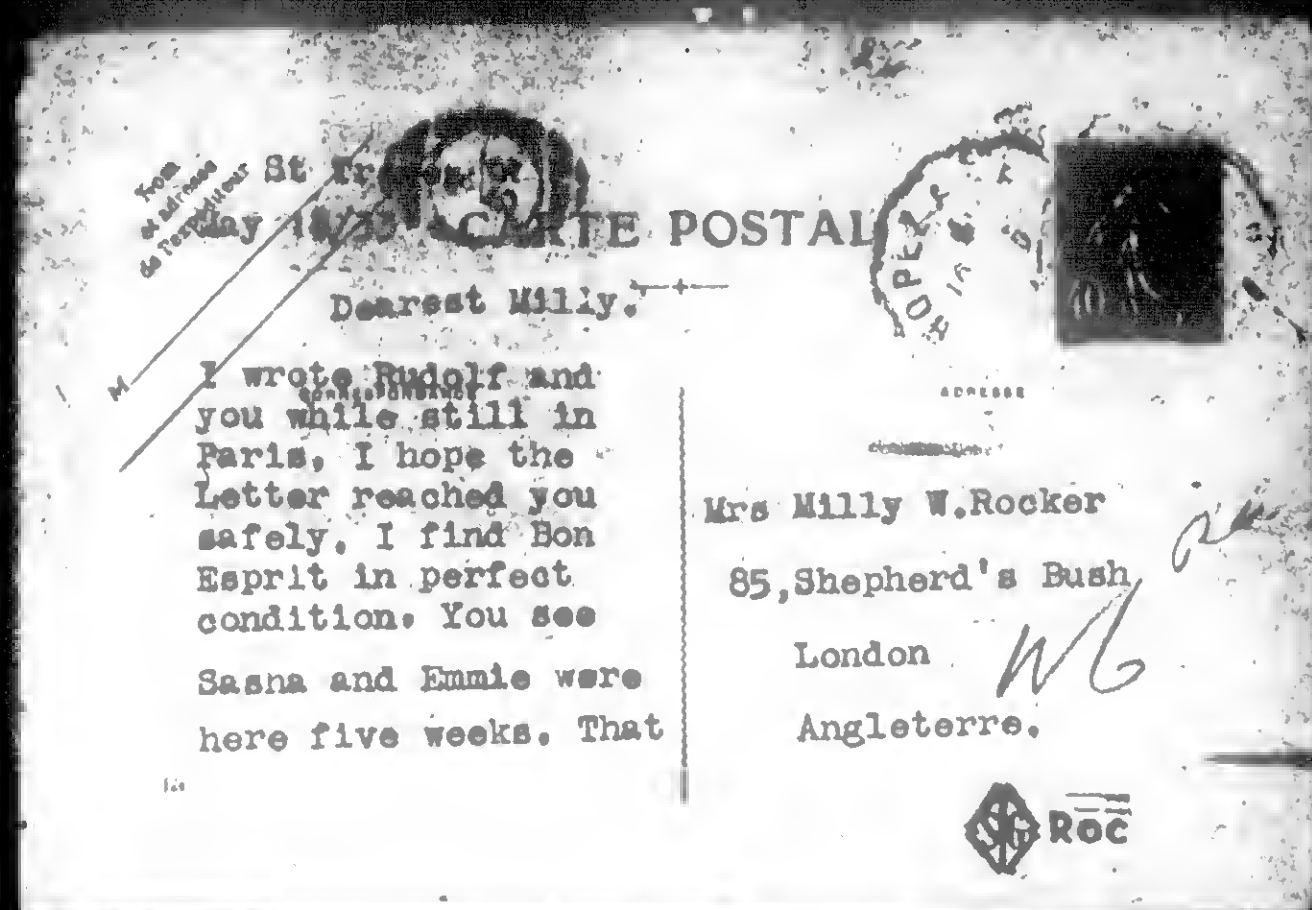 Nom
et adresse
de l'expediteur
St Tr
May
CARTE POSTALE
Dearest Milly.
CORRESPONDANCE
I wrote Rudolf and
you while still in
Paris. I hope the
Letter reached you
safely. I find Bon
Esprit in perfect
condition. You see
Sasha and Emmie were
here five weeks. That
M
ADRESSE
Mrs Milly W.Rocker
85,Shepherd's Bush,
London W6
Angleterre.
SG ROC